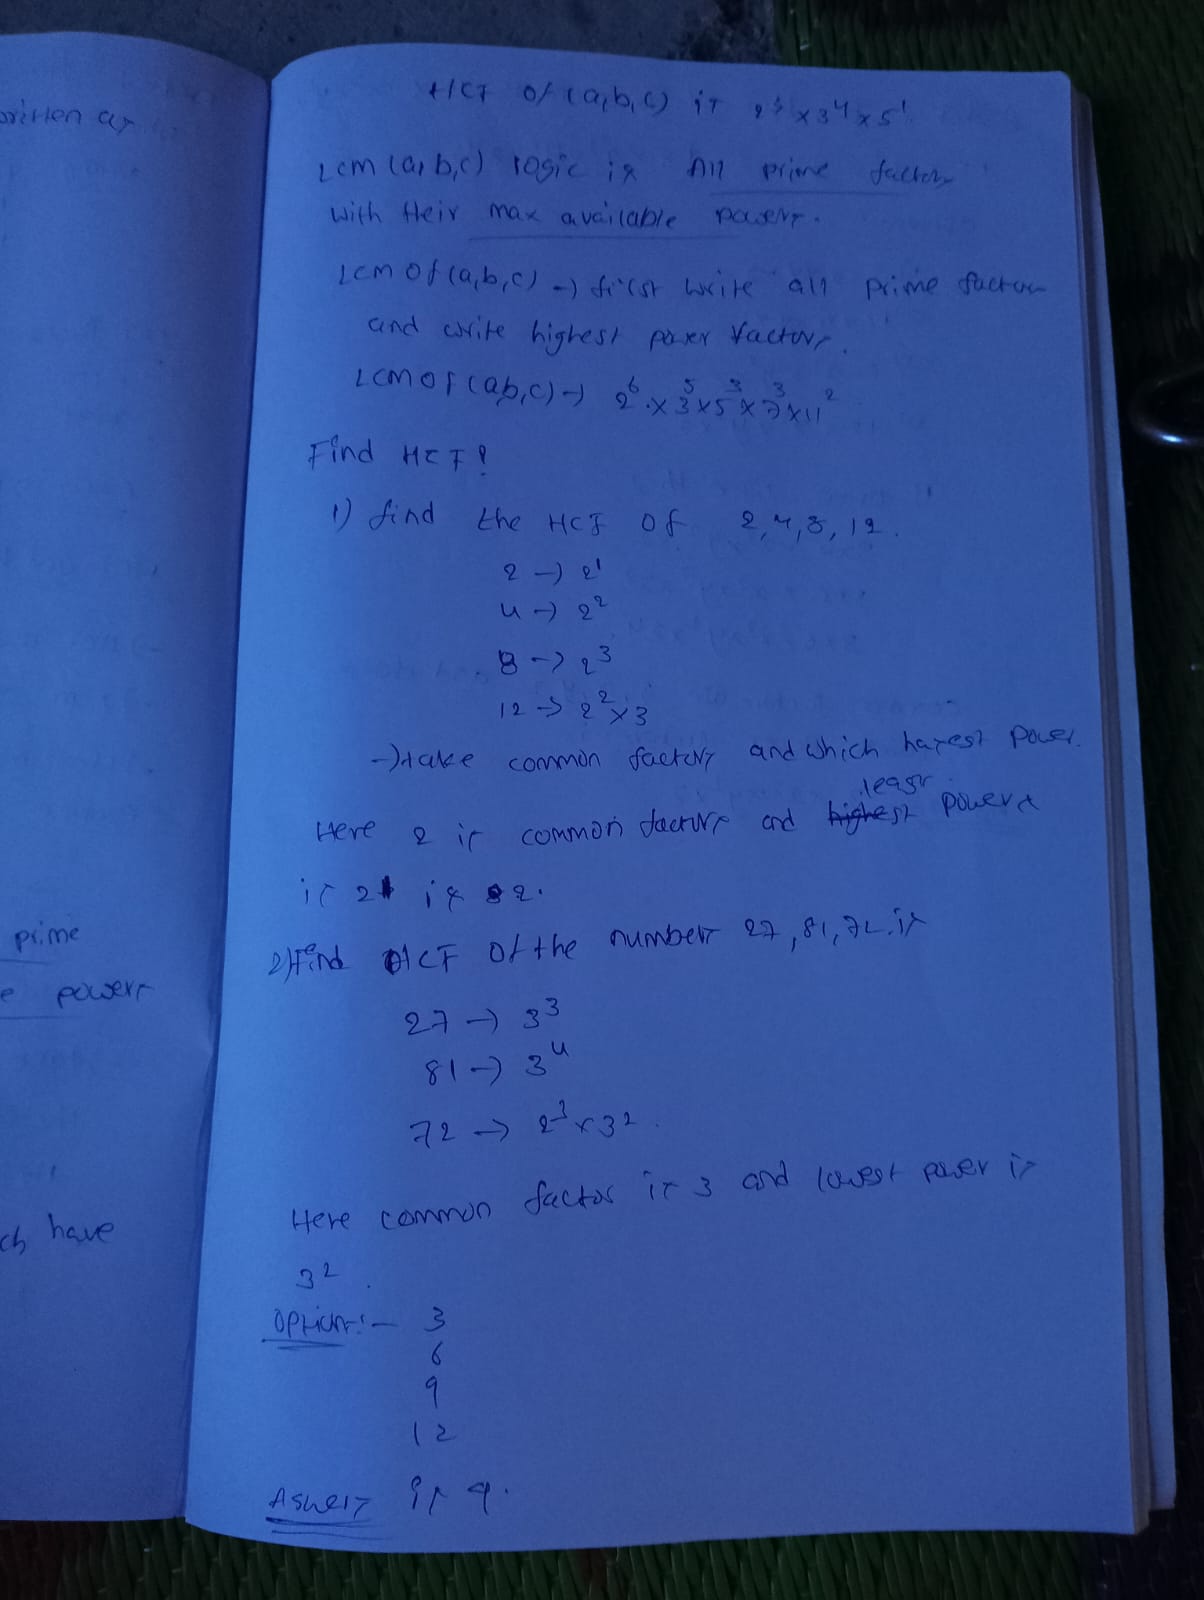 written as
prime
powers
ch have
HCF of (a,b,c) is 2³ x 3⁴ x 5¹
Lcm (a, b,c) logic is All prime factors
with their max available powers.
Lcm of (a,b,c) → first write all prime factors
and write highest power factors.
LCM of (a,b,c) → 2⁶ x 3⁵ x 5³ x 7³ x 11²
Find HCF?
1) find the HCF of 2,4,8,12.
2 → 2¹
4 → 2²
8 → 2³
12 → 2² x 3
→ take common factors and which power.
least
Here 2 is common factors and highest powers
is 2 is 2.
2) Find HCF of the numbers 27, 81, 72 is
27 → 3³
81 → 3⁴
72 → 2³ x 3².
Here common factor is 3 and lowest power is
3².
Options:- 3
6
9
12
Aswers is 9.